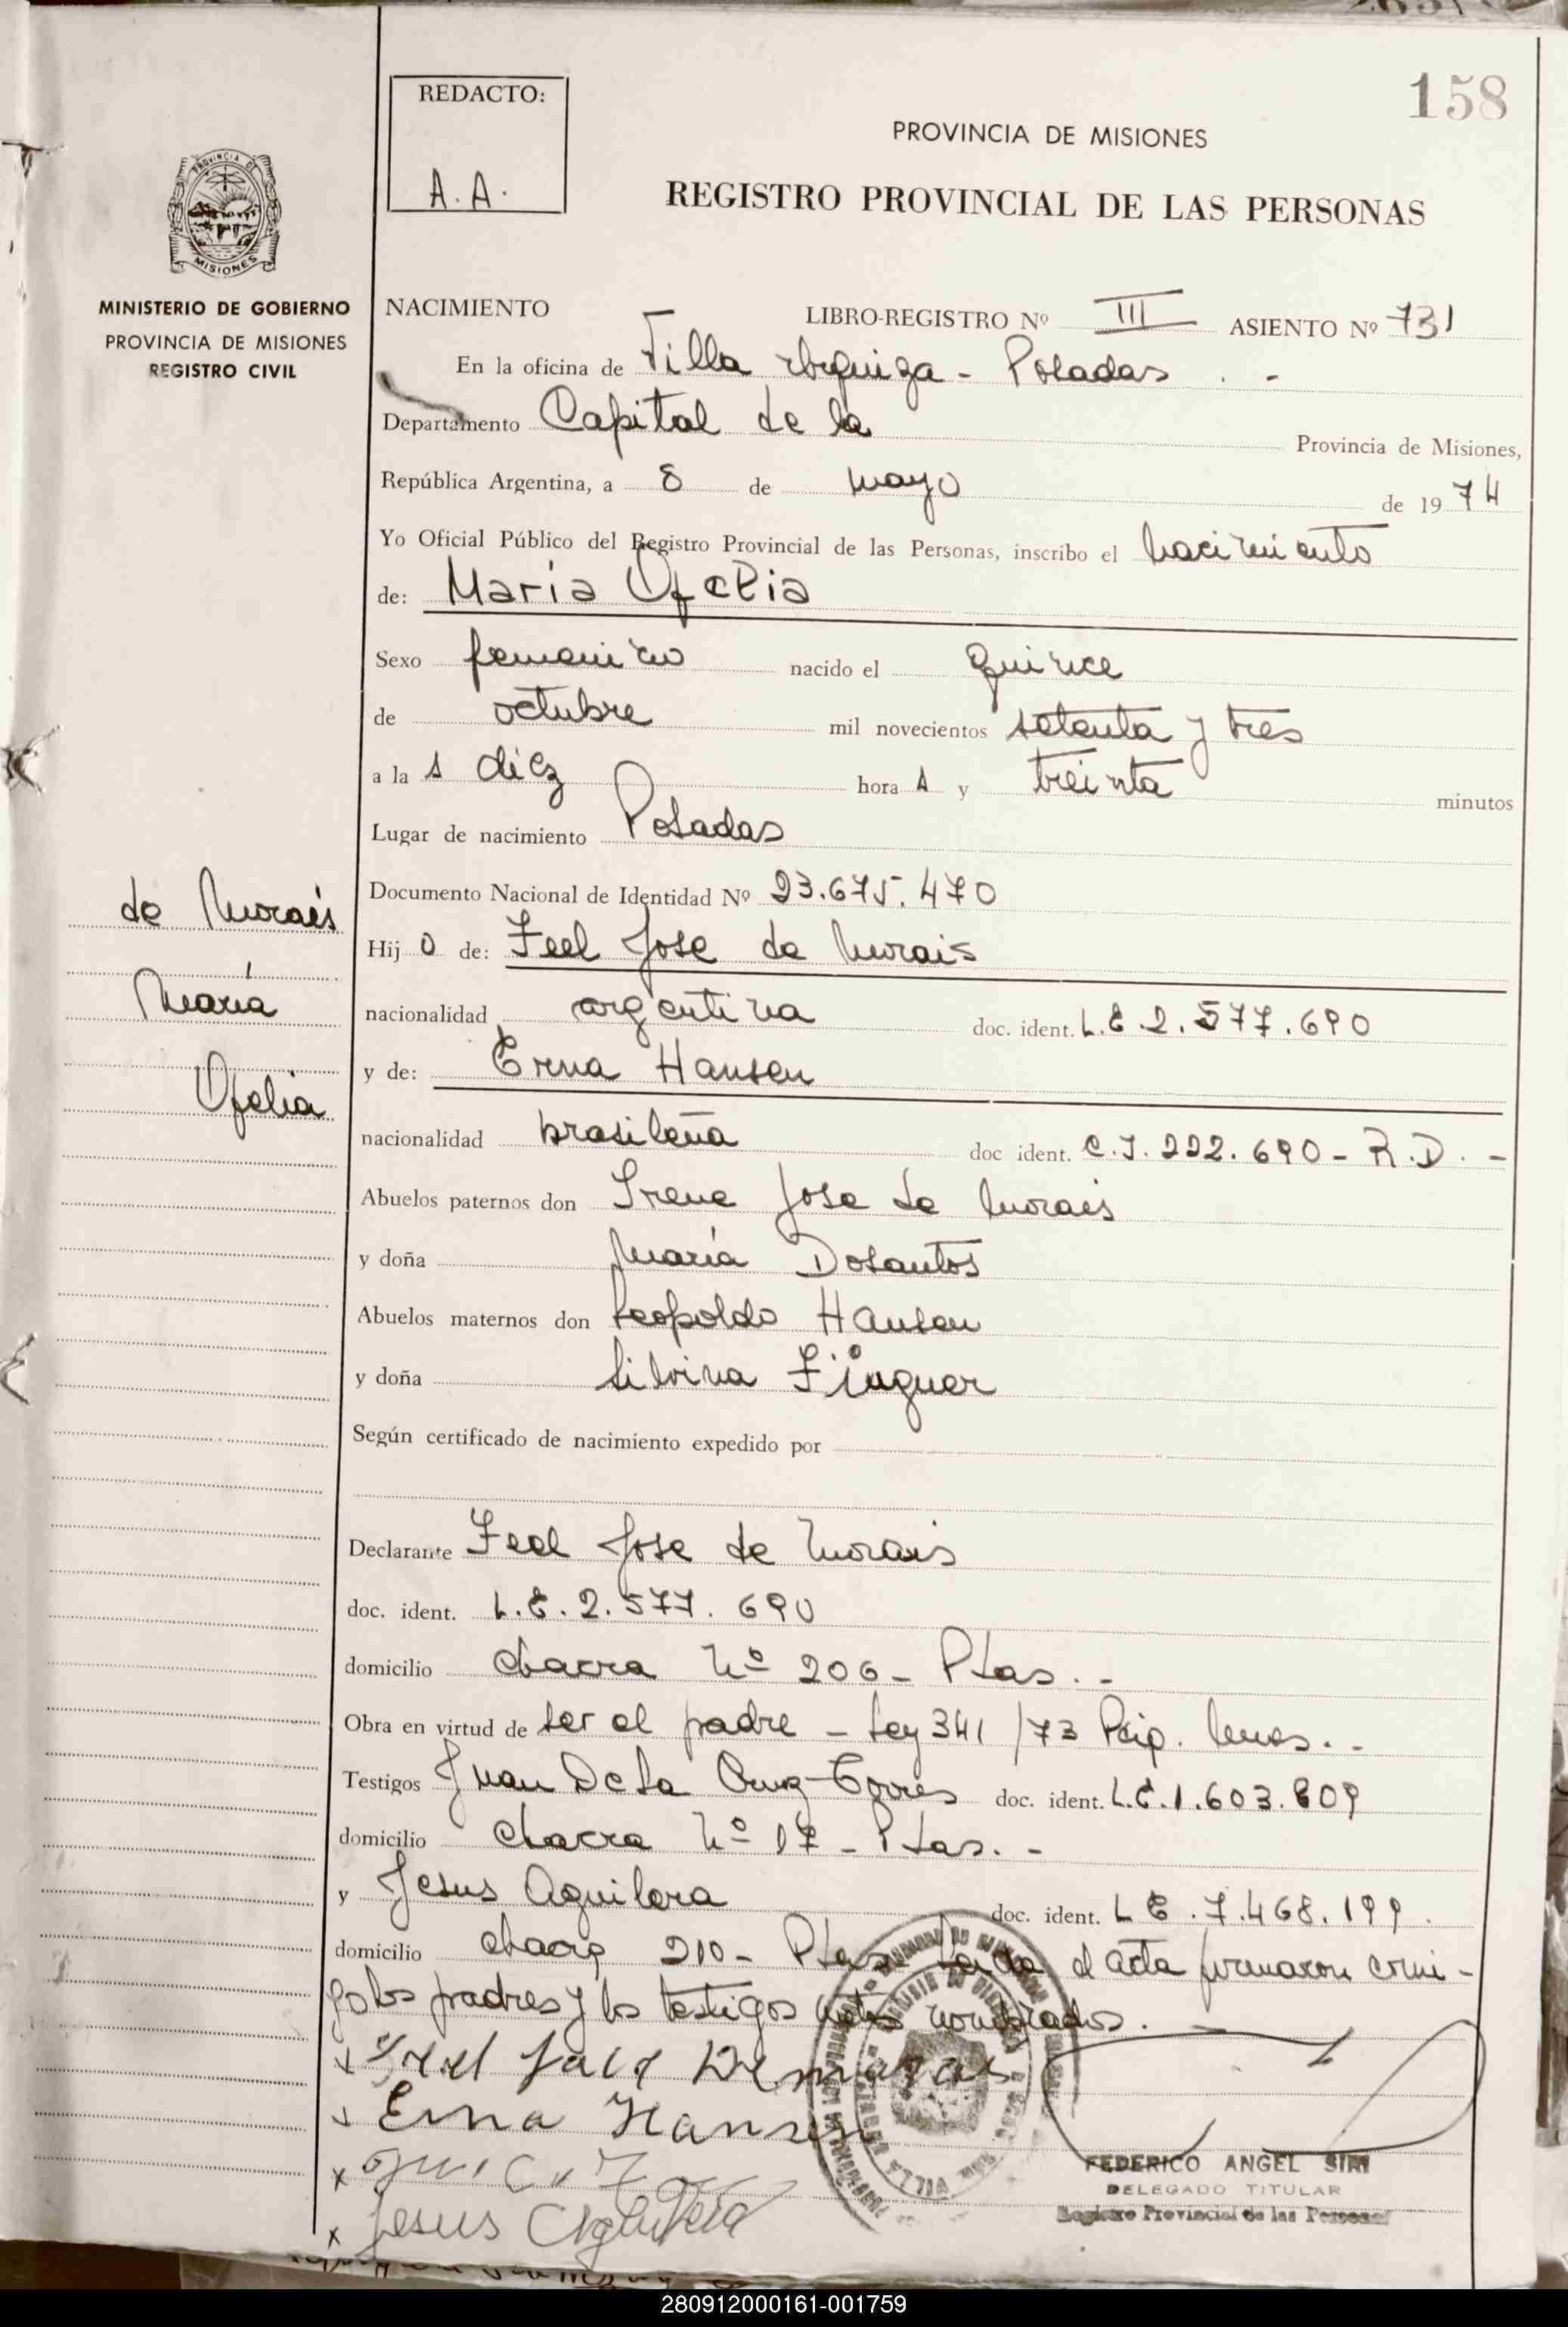 158
REDACTO:
A. A.
PROVINCIA DE MISIONES
REGISTRO PROVINCIAL DE LAS PERSONAS
PROVINCIA DE
MISIONES
MINISTERIO DE GOBIERNO
PROVINCIA DE MISIONES
REGISTRO CIVIL
NACIMIENTO LIBRO-REGISTRO Nº III ASIENTO Nº 731
En la oficina de Villa Urquiza - Posadas . -
Departamento Capital de la Provincia de Misiones,
República Argentina, a 8 de mayo de 1974
Yo Oficial Público del Registro Provincial de las Personas, inscribo el nacimiento
de: Maria Ofelia
Sexo femenino nacido el quince
de octubre mil novecientos setenta y tres
a la s diez hora s y treinta minutos
Lugar de nacimiento Posadas
Documento Nacional de Identidad Nº 23.675.470
de Morais
María
Ofelia
Hij o de: Feel Jose de Morais
nacionalidad argentina doc. ident. L.E 2.577.690
y de: Erna Hansen
nacionalidad brasileña doc ident. C.I. 222.690 - R.D. -
Abuelos paternos don Irene Jose de Morais
y doña María Dosantos
Abuelos maternos don Leopoldo Hansen
y doña Silvina Finguer
Según certificado de nacimiento expedido por
Declarante Feel Jose de Morais
doc. ident. L.E. 2.577.690
domicilio chacra Nº 206 - Pdas. -
Obra en virtud de ser el padre - Ley 341/73 . -
Testigos Juan De La Cruz Torres doc. ident. L.E. 1.603.809
domicilio chacra Nº 17 - Pdas. -
y Jesus Aguilera doc. ident. L E . 7.468.199.
domicilio chacra 210 - Pdas Leida el acta firmaron conmi-
go los padres y los testigos antes nombrados.
x Jose De morais
x Erna Hansen
x
x Jesus Aguilera
FEDERICO ANGEL SIRI
DELEGADO TITULAR
Registro Provincial de las Personas
280912000161-001759